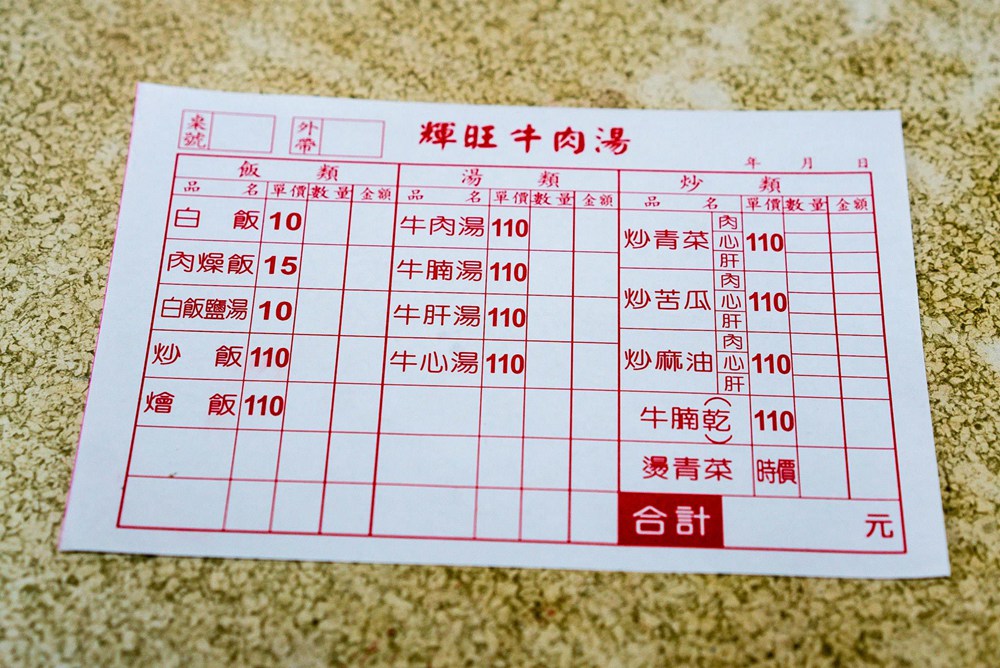 桌號 外帶 輝旺牛肉湯
年 月 日
飯類 湯類 炒類
品名 單價 數量 金額 品名 單價 數量 金額 品名 單價 數量 金額
白飯 10 牛肉湯 110 炒青菜 肉 心 肝 110
肉燥飯 15 牛腩湯 110 炒苦瓜 肉 心 肝 110
白飯鹽湯 10 牛肝湯 110 炒麻油 肉 心 肝 110
炒飯 110 牛心湯 110 牛腩(乾) 110
燴飯 110 燙青菜 時價
合計 元